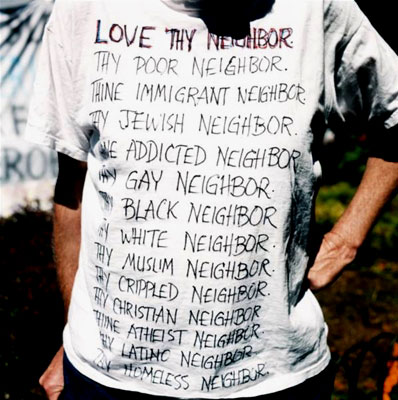 LOVE THY NEIGHBOR.
THY POOR NEIGHBOR.
THINE IMMIGRANT NEIGHBOR.
THY JEWISH NEIGHBOR.
THINE ADDICTED NEIGHBOR
THY GAY NEIGHBOR.
THY BLACK NEIGHBOR
THY WHITE NEIGHBOR.
THY MUSLIM NEIGHBOR.
THY CRIPPLED NEIGHBOR.
THY CHRISTIAN NEIGHBOR
THINE ATHEIST NEIGHBOR.
THY LATINO NEIGHBOR.
THY HOMELESS NEIGHBOR.